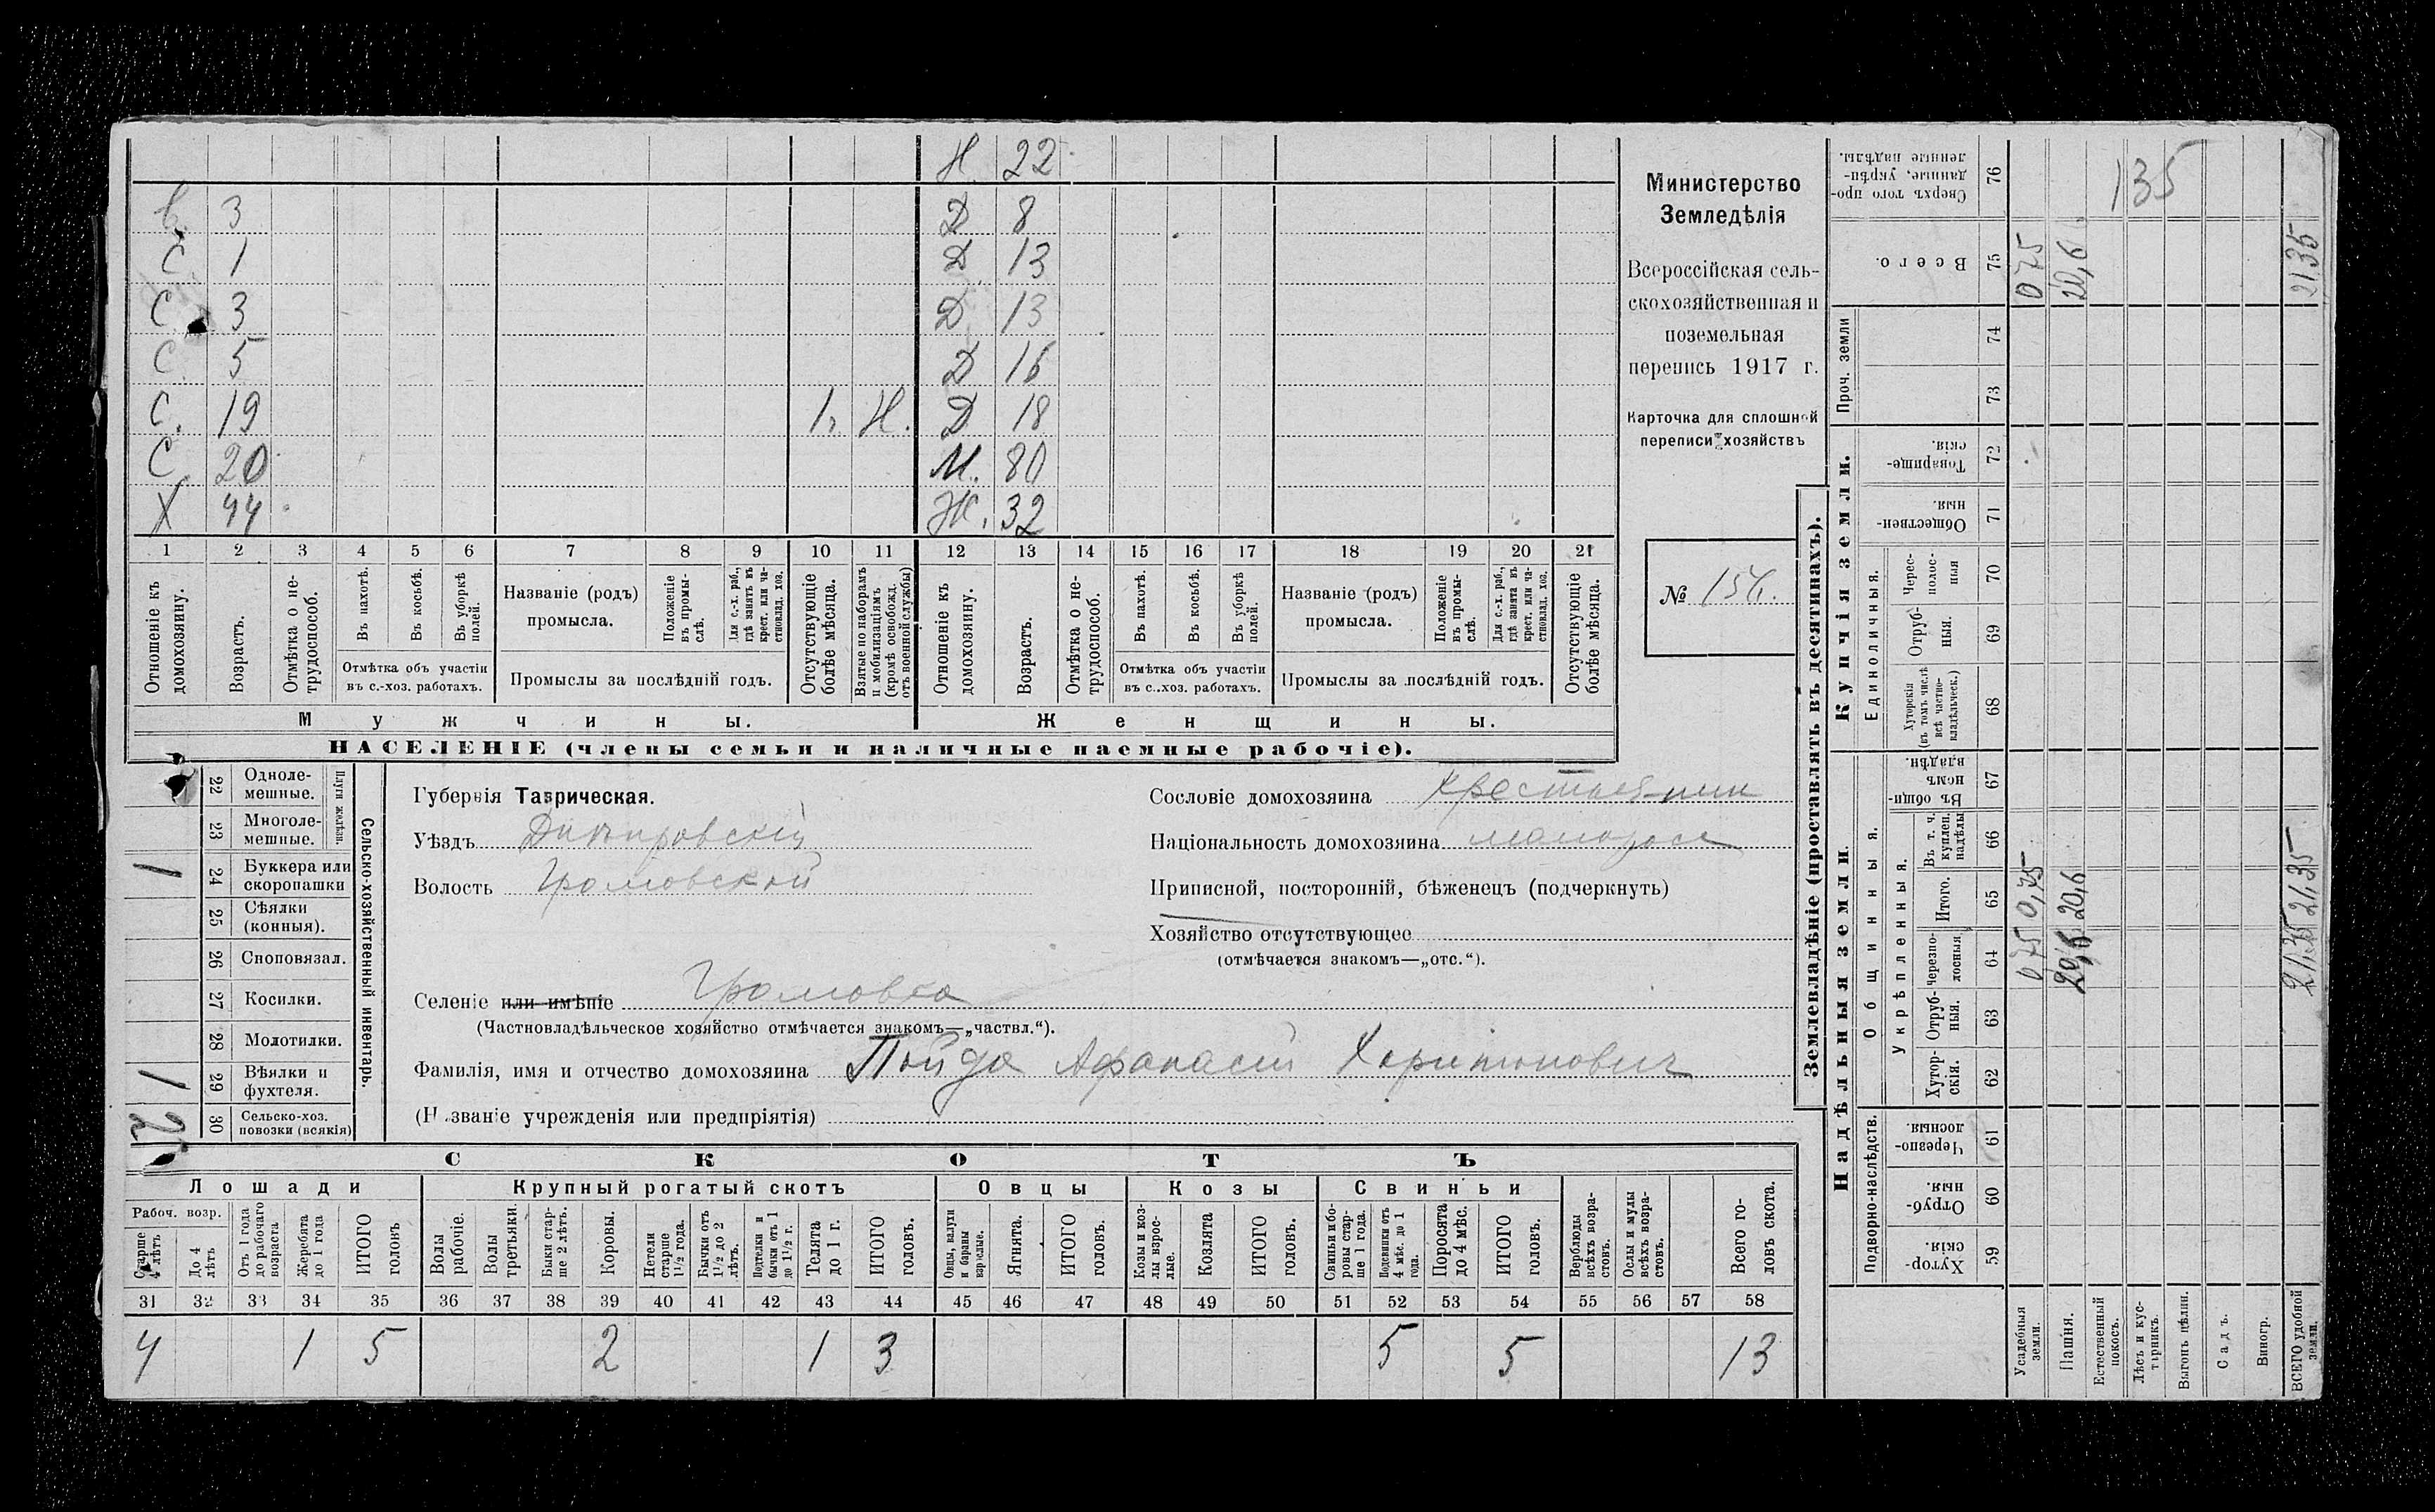 Н 22
в. 3 Д 8
С. 1 Д 13
С. 3 Д 13
С. 5 Д 16
С. 19 Н. Д 18
С. 20 М. 80
Х 44 Ж. 32
1 2 3 4 5 6 7 8 9 10 11 12 13 14 15 16 17 18 19 20 21
Отношеніе къ домохозяину.
Возрастъ.
Отмѣтка о не-трудоспособ.
Въ пахотѣ.
Въ косьбѣ.
Въ уборкѣ полей.
Отмѣтка объ участіи
въ с.-хоз. работахъ.
Названіе (родъ)
промысла.
Положеніе въ промы-слѣ.
Для с.-х. раб., гдѣ занятъ въ крест. или ча-стновлад. хоз.
Промыслы за послѣдній годъ.
Отсутствующіе болѣе мѣсяца.
Взятые по наборамъ и мобилизаціямъ (кромѣ освобожд. отъ военной службы)
Отношеніе къ домохозяину.
Возрастъ.
Отмѣтка о не-трудоспособ.
Въ пахотѣ.
Въ косьбѣ.
Въ уборкѣ полей.
Отмѣтка объ участіи
въ с..хоз. работахъ.
Названіе (родъ)
промысла.
Положеніе въ промы-слѣ.
Для с.-х. раб., гдѣ занята въ крест. или ча-стновлад. хоз.
Промыслы за послѣдній годъ.
Отсутствующіе болѣе мѣсяца.
Мужчины. Женщины.
НАСЕЛЕНІЕ (члены семьи и наличные наемные рабочіе).
Министерство
Земледѣлія
Всероссійская сель-
скохозяйственная и
поземельная
перепись 1917 г.
Карточка для сплошной
переписи хозяйствъ
№ 154.
Сельско-хозяйственный инвентарь.
Плуги желѣзн.
22 Одноле-мешные.
23 Многоле-мешные.
1 24 Буккера или скоропашки
25 Сѣялки (конныя).
26 Сноповязал.
27 Косилки.
28 Молотилки.
1 29 Вѣялки и фухтеля.
2 30 Сельско-хоз. повозки (всякія)
Губернія Таврическая.
Уѣздъ Днѣпровскій
Волость Громовской
Сословіе домохозяина крестьянин
Національность домохозяина малоросс
Приписной, посторонній, бѣженецъ (подчеркнуть)
Хозяйство отсутствующее
(отмѣчается знакомъ—„отс.“).
Селеніе или имѣніе Громовка
(Частновладѣльческое хозяйство отмѣчается знакомъ—„частвл.“).
Фамилія, имя и отчество домохозяина Пойда Афанасій Харитонович
(Названіе учрежденія или предпріятія)
СКОТЪ
Лошади Крупный рогатый скотъ Овцы Козы Свиньи
Рабоч. возр.
Старше 4 лѣтъ
До 4 лѣтъ
Отъ 1 года до рабочаго возраста
Жеребята до 1 года
ИТОГО головъ
Волы рабочіе.
Волы третьяки.
Быки стар-ше 2 лѣтъ.
Коровы.
Нетели старше 1½ года.
Бычки отъ 1½ до 2 лѣтъ.
Подтелки и бычки отъ 1 до 1½ г.
Телята до 1 г.
ИТОГО головъ.
Овцы, валухи и бараны взрослые.
Ягнята.
ИТОГО головъ.
Козы и коз-лы взрос-лые.
Козлята
ИТОГО головъ.
Свиньи и бо-ровы стар-ше 1 года.
Подсвинки отъ 4 мѣс. до 1 года.
Поросята до 4 мѣс.
ИТОГО головъ.
Верблюды всѣхъ возра-стовъ.
Ослы и мулы всѣхъ возра-стовъ.
Всего го-ловъ скота.
31 32 33 34 35 36 37 38 39 40 41 42 43 44 45 46 47 48 49 50 51 52 53 54 55 56 57 58
4 1 5 2 1 3 5 5 13
Землевладѣніе (проставлять въ десятинахъ).
Надѣльныя земли.
Купчія земли.
Проч. земли
Подворно-наслѣдств.
Общинныя.
Укрѣпленныя.
Единоличныя.
Сверхъ того про-данные, укрѣп-ленные надѣлы. 76 135
Всего. 75 075 20,6 2135
74
73
Товарище-скія. 72
Обществен-ныя. 71
Черес-полос-ныя 70
Отруб-ныя. 69
Хуторскія (въ томъ числѣ всѣ частно-владѣльческ.) 68
Въ общи-номъ владѣн. 67
Въ т. ч. куплен. надѣлы 66
Итого. 65 0,75 20,6 21,35
Черезпо-лосныя 64 075 20,6 21,35
Отруб-ныя. 63
Хутор-скія. 62
Черезпо-лосныя. 61
Отруб-ныя. 60
Хутор-скія. 59
Усадебныя земли.
Пашня.
Естественный покосъ.
Лѣсъ и кус-тарникъ.
Выгонъ цѣлин.
Садъ.
Виногр.
ВСЕГО удобной земли.